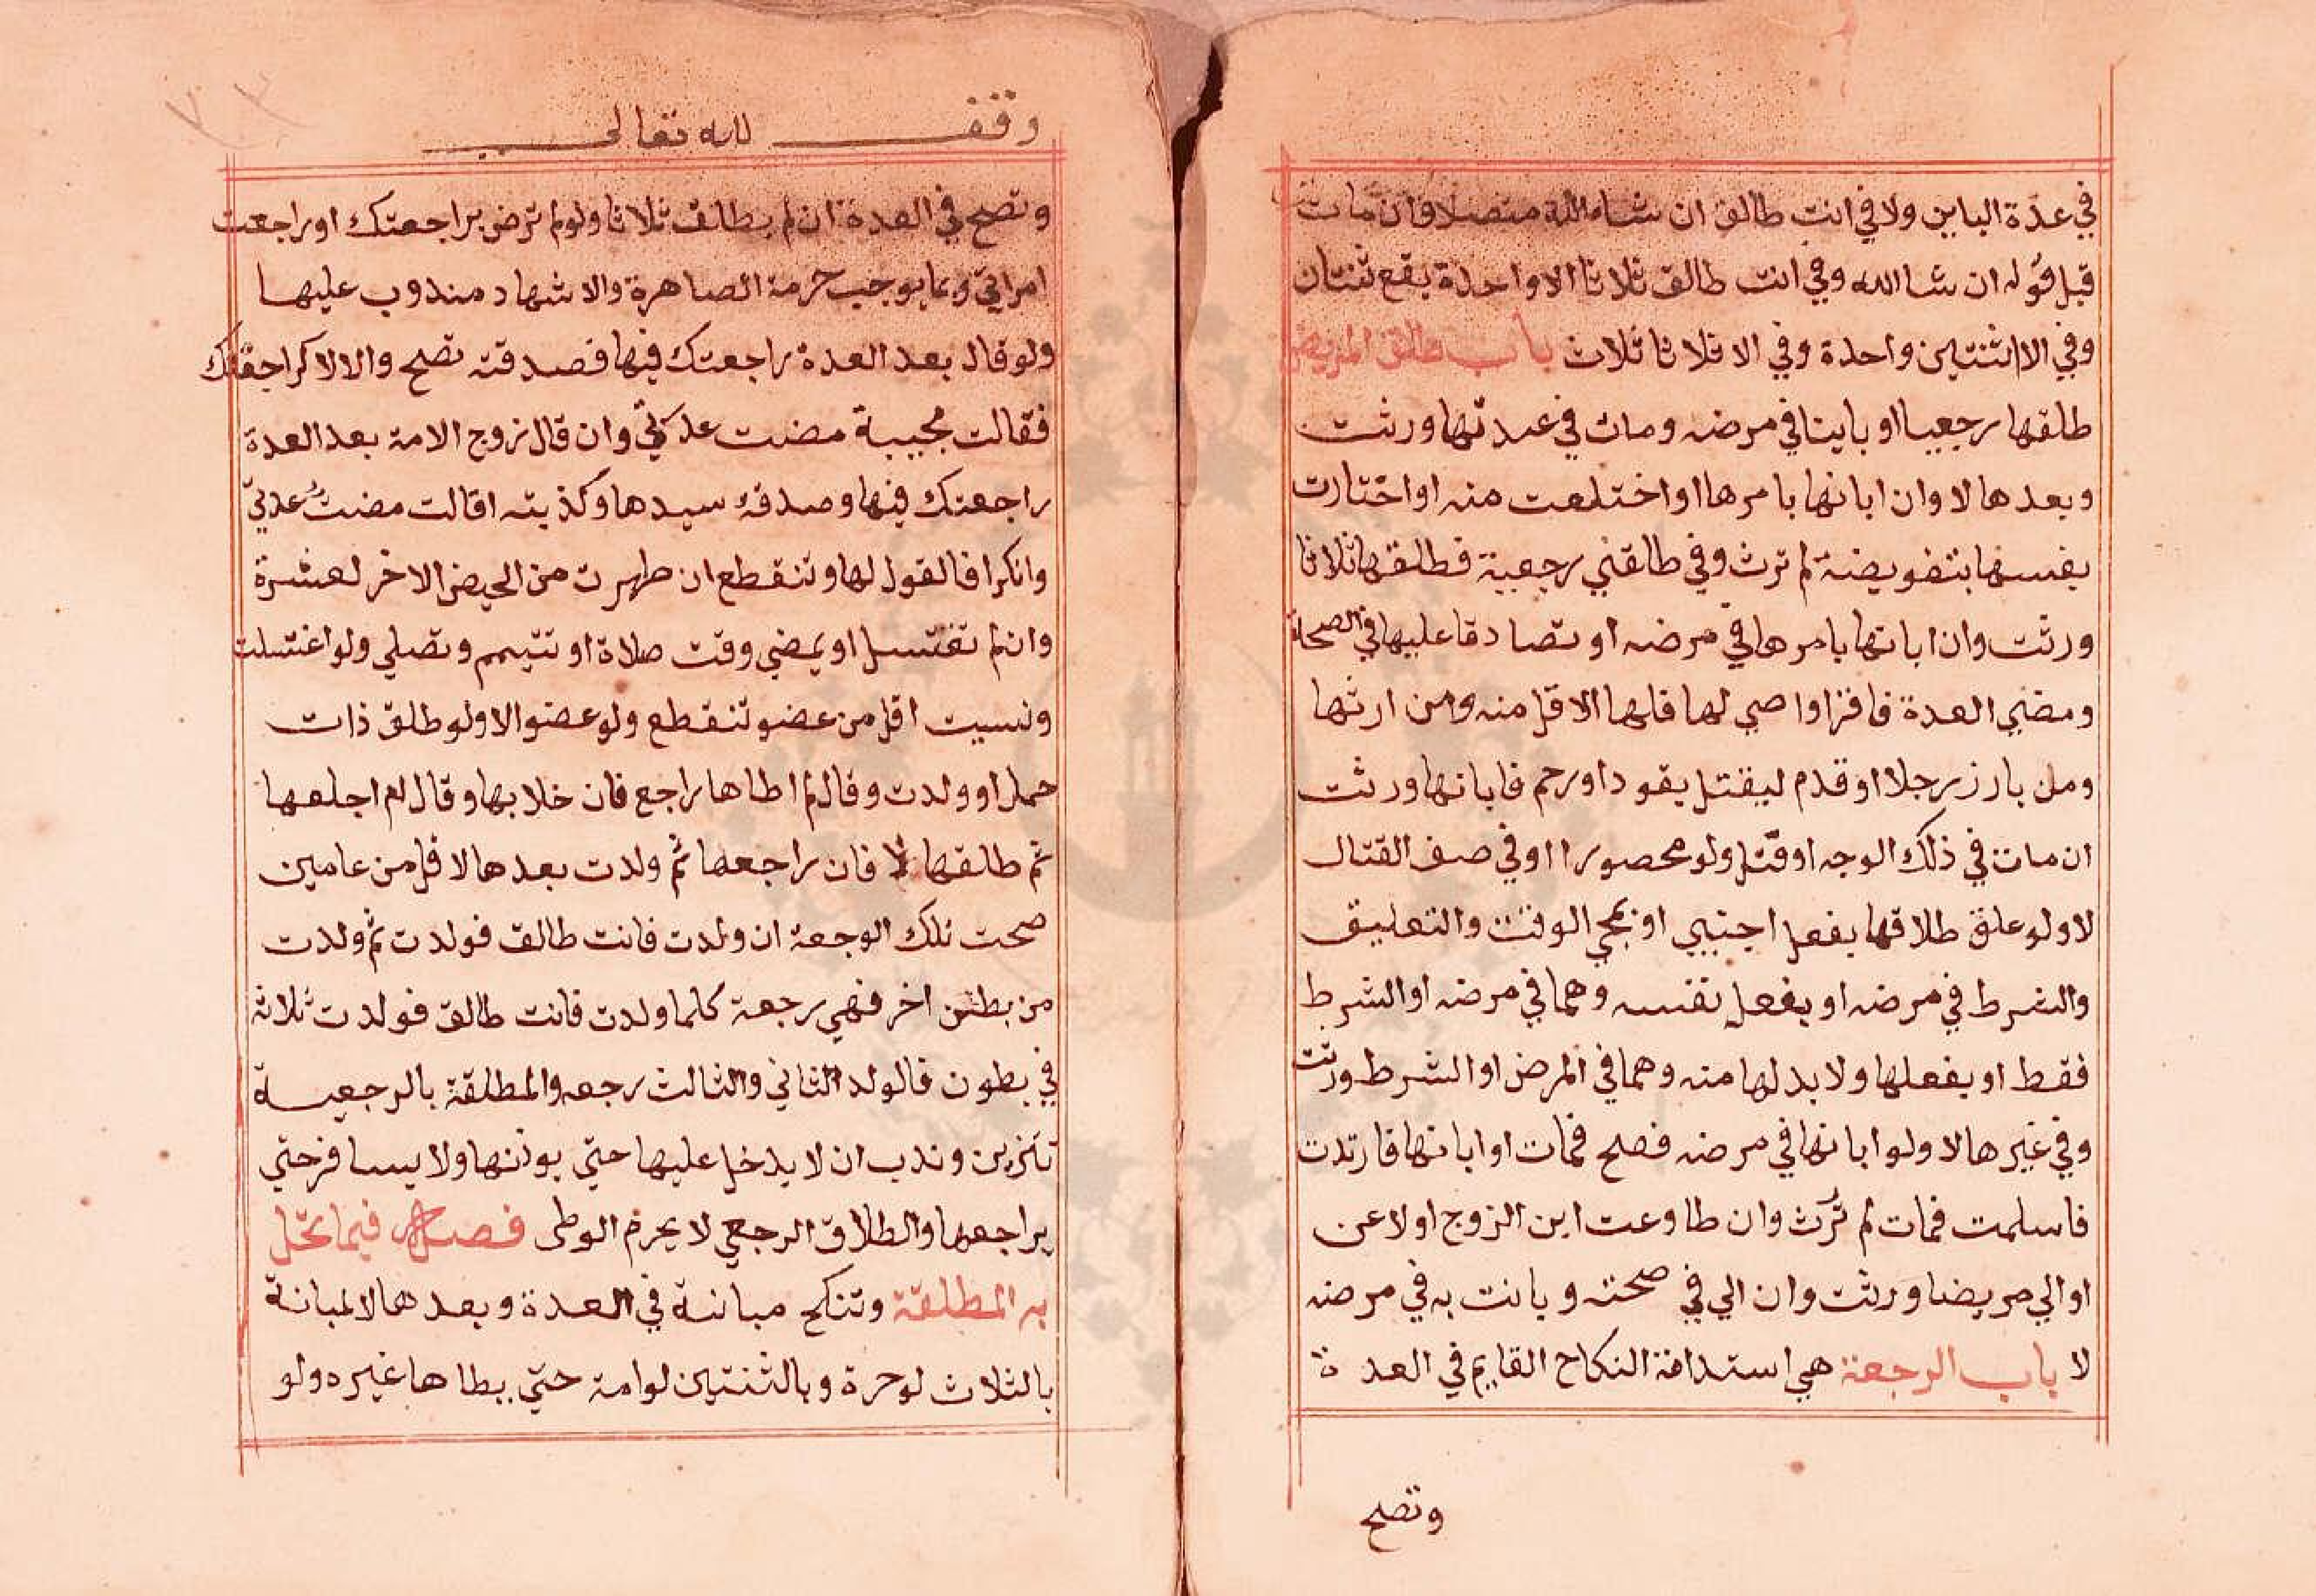 في عدة الباين ولا في انت طالق ان شاء الله متصلا وان ماتت
قبل قوله ان شا الله وفي انت طالق ثلاثا الا واحدة يقع ثنتان
وفي الا اثنتين واحدة وفي الا ثلاثا ثلاث باب طلاق المريض
طلقها رجعيا او باينا في مرضه ومات في عدتها ورثت
وبعدها لا وان ابانها بامرها او اختلعت منه او اختارت
نفسها بتفويضه لم ترث وفي طلقني رجعية فطلقها ثلاثا
ورثت وان ابانها بامرها في مرضه او تصادقا عليها في الصحة
ومضي العدة فاقر او اصي لها فلها الاقل منه ومن ارثها
ومن بارز رجلا او قدم ليقتل بقود او رجم فابانها ورثت
ان مات في ذلك الوجه او قتل ولو محصورا او في صف القتال
لا ولو علق طلاقها بفعل اجنبي او بمجي الوقت والتعليق
والشرط في مرضه او بفعل نفسه وهما في مرضه او الشرط
فقط او بفعلها ولا بد لها منه وهما في المرض او الشرط ورثت
وفي غيرها لا ولو ابانها في مرضه فصح فمات او ابانها فارتدت
فاسلمت فمات لم ترث وان طاوعت ابن الزوج او لاعن
او الي مريضا ورثت وان الي في صحته وبانت به في مرضه
لا باب الرجعة هي استدامة النكاح القايم في العدة
وتصح
وقف لله تعالى
وتصح في العدة ان لم يطلق ثلاثا ولو لم ترض براجعتك او راجعت
امراتي وبما يوجب حرمة الصاهرة والاشهاد مندوب عليها
ولو قال بعد العدة راجعتك فيها فصدقته تصح والا لا كراجعتك
فقالت مجيبة مضت عدتي وان قال زوج الامة بعد العدة
راجعتك فيها وصدقه سيدها وكذبته اقالت مضت عدتي
وانكرا فالقول لها وتنقطع ان طهرت من الحيض الاخر لعشرة
وان لم تغتسل او يمضي وقت صلاة او تتيمم وتصلي ولو اغتسلت
ونسيت اقل من عضو تنقطع ولو عضوا لا ولو طلق ذات
حمل او ولدت وقال لم اطاها راجع فان خلا بها وقال لم اجلعها
ثم طلقها لا فان راجعها ثم ولدت بعدها لاقل من عامين
صحت تلك الوجعة ان ولدت فانت طالق فولدت ثم ولدت
من بطن اخر فهي رجعة كلما ولدت فانت طالق فولدت ثلاثة
في بطون فالولد الثاني والثالث رجعه والمطلقة بالرجعية
تتزين وندب ان لا يدخل عليها حتي يوذنها ولا يسافر حتي
يراجعها والطلاق الرجعي لا يحرم الوطى فصل فيما تحل
به المطلقة وتنكح مبانته في العدة وبعدها لا لمبانة
بالثلاث لو حرة وبالثنتين لو امة حتي يطاها غيره ولو